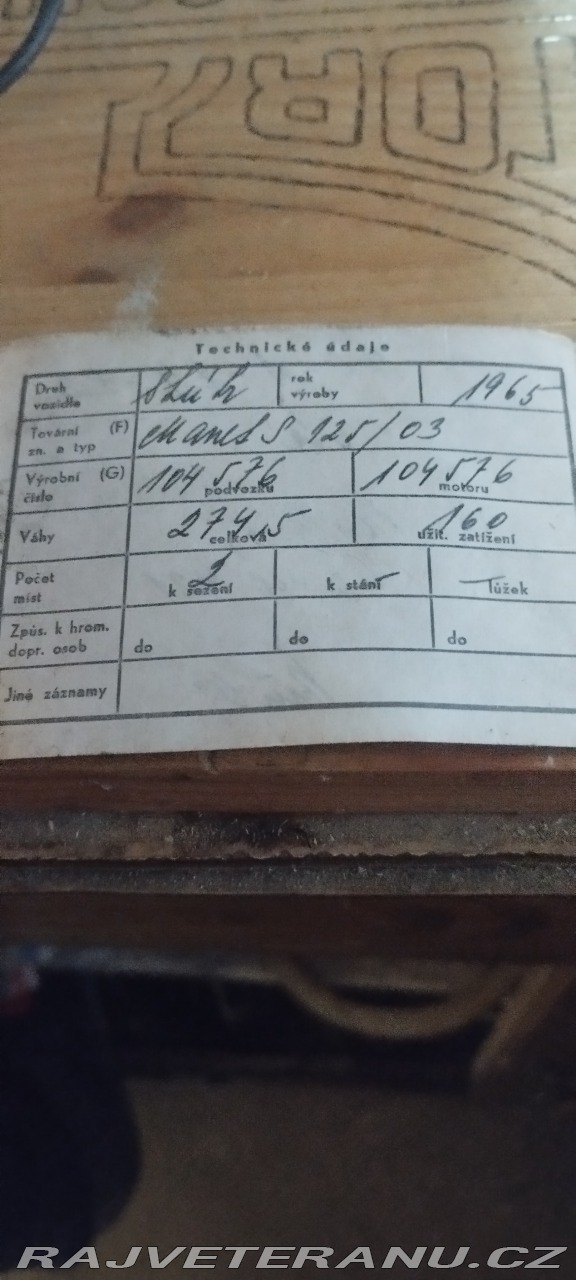 Technické údaje
Druh vozidla skútr rok výroby 1965
Tovární (F) zn. a typ Manet S 125/03
Výrobní (G) číslo 104 576 podvozku 104 576 motoru
Váhy 274,5 celková 160 užit. zatížení
Počet míst 2 k sezení k stání lůžek
Způs. k hrom. dopr. osob do do do
Jiné záznamy
RAJVETERANU.CZ